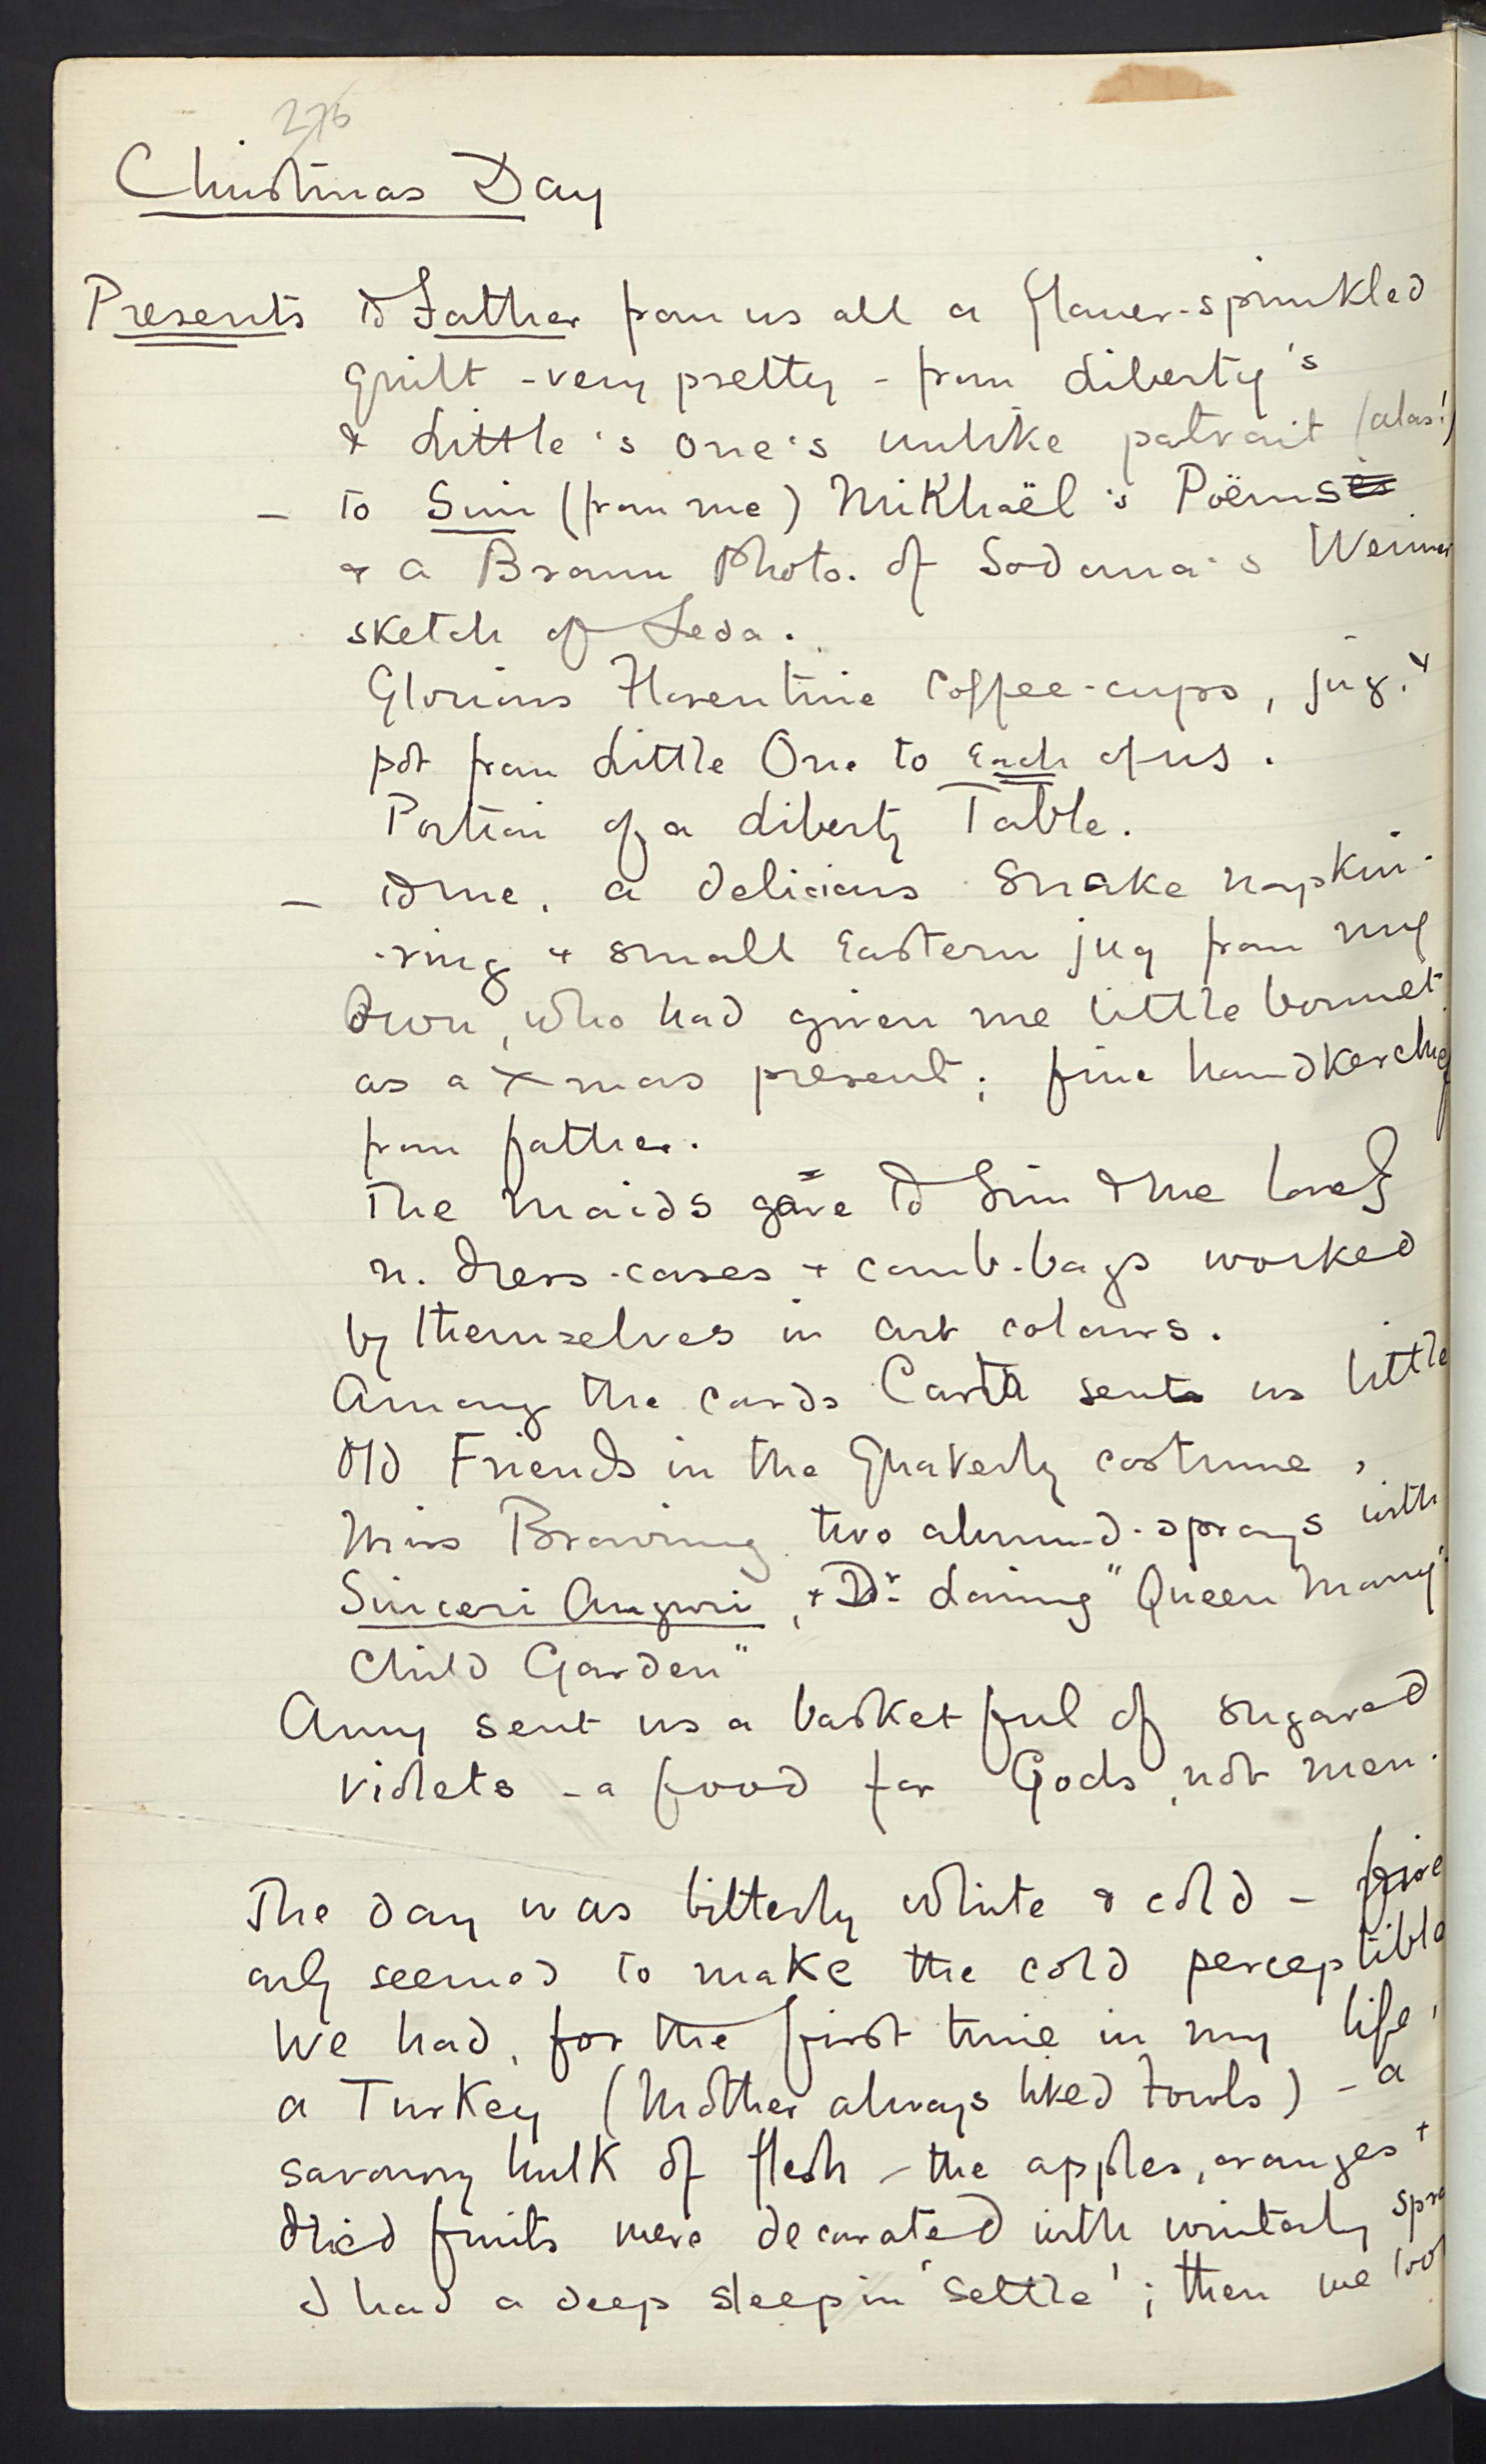 276
Christmas Day
Presents to Father from us all a flower-sprinkled
quilt - very pretty - from Liberty's
& Little's One's unlike portrait (alas!)
- to Sim (from me) Mikhaël's Poëms
& a Braun Photo. of Sodoma's Weimar
sketch of Leda.
Glorious Florentine Coffee-cups, jug. &
pot from Little One to Each of us.
Portion of a Liberty Table.
- to me, a delicious snake napkin-
-ring & small Eastern jug from my
Own, who had given me little bonnet
as a Xmas present; fine handkerchief
from father.
The Maids gave to Sim & me lovely
n. dress-cases & comb-bags worked
by themselves in art colours.
Among the cards Carta sent us little
Old Friends in the Quakerly costume,
Miss Browning two almond-sprays with
Sinceri Auguri, & Dr. Laing "Queen Mary's
Child Garden"
Amy sent us a basket ful of sugared
violets - a food for Gods, not men.
The day was bitterly white & cold - fire
only seemed to make the cold perceptible
We had, for the first time in my life,
a Turkey (Mother always liked Fowls) - a
savoury hulk of flesh - the apples, oranges &
dried fruits were decorated with winterly
I had a deep sleep in 'Settle'; then we